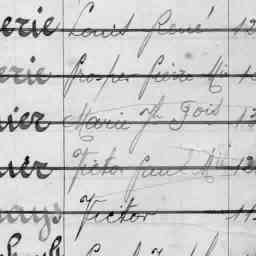 erie Louis René 12
erie Prosper Pierre M
ier Marie Th Fois 13
uer Victor Paul M 12
ays Victor 11